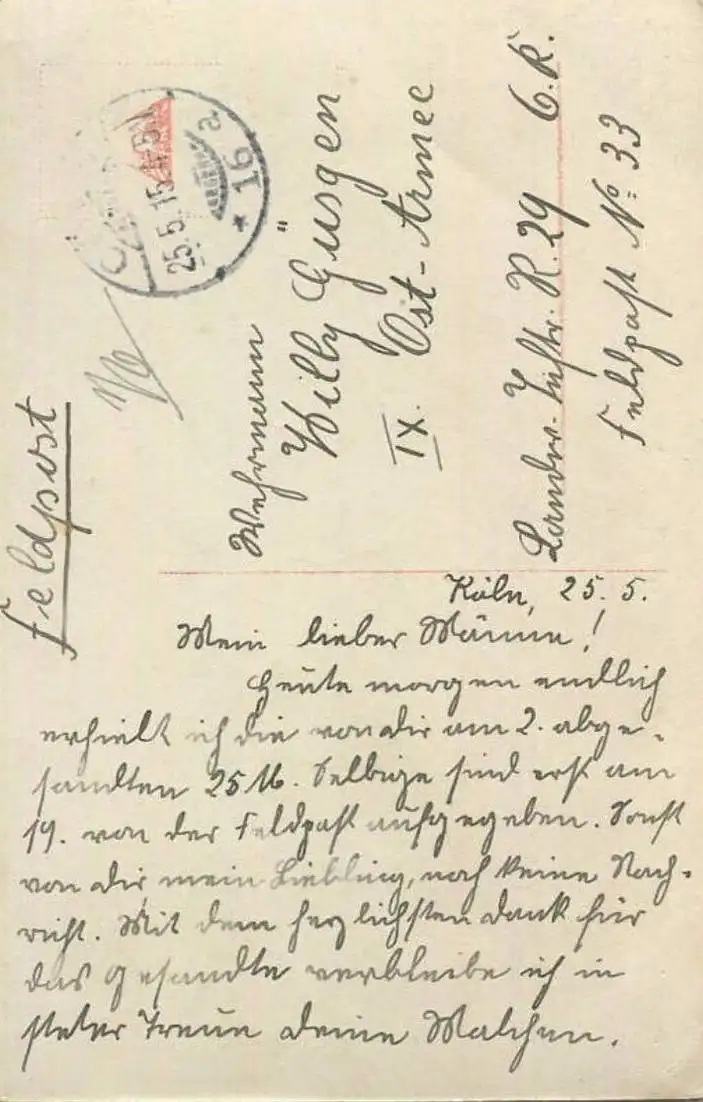 Feldpost
25.5.15. 4-5N
* 16 a
Wehrmann
Willy Güsgen
IX. Ost-Armee
Landw. Inftr. R. 29 6.K.
Feldpost No: 33
Köln, 25. 5.
Mein lieber Männe!
Heute morgen endlich
erhielt ich die von dir am 2. abge-
sandten 25 M. Selbige sind erst am
19. von der Feldpost aufgegeben. Sonst
von dir mein Liebling, noch keine Nach-
richt. Mit dem herzlichsten Dank für
das Gesandte verbleibe ich in
steter Treue deine Malchen.